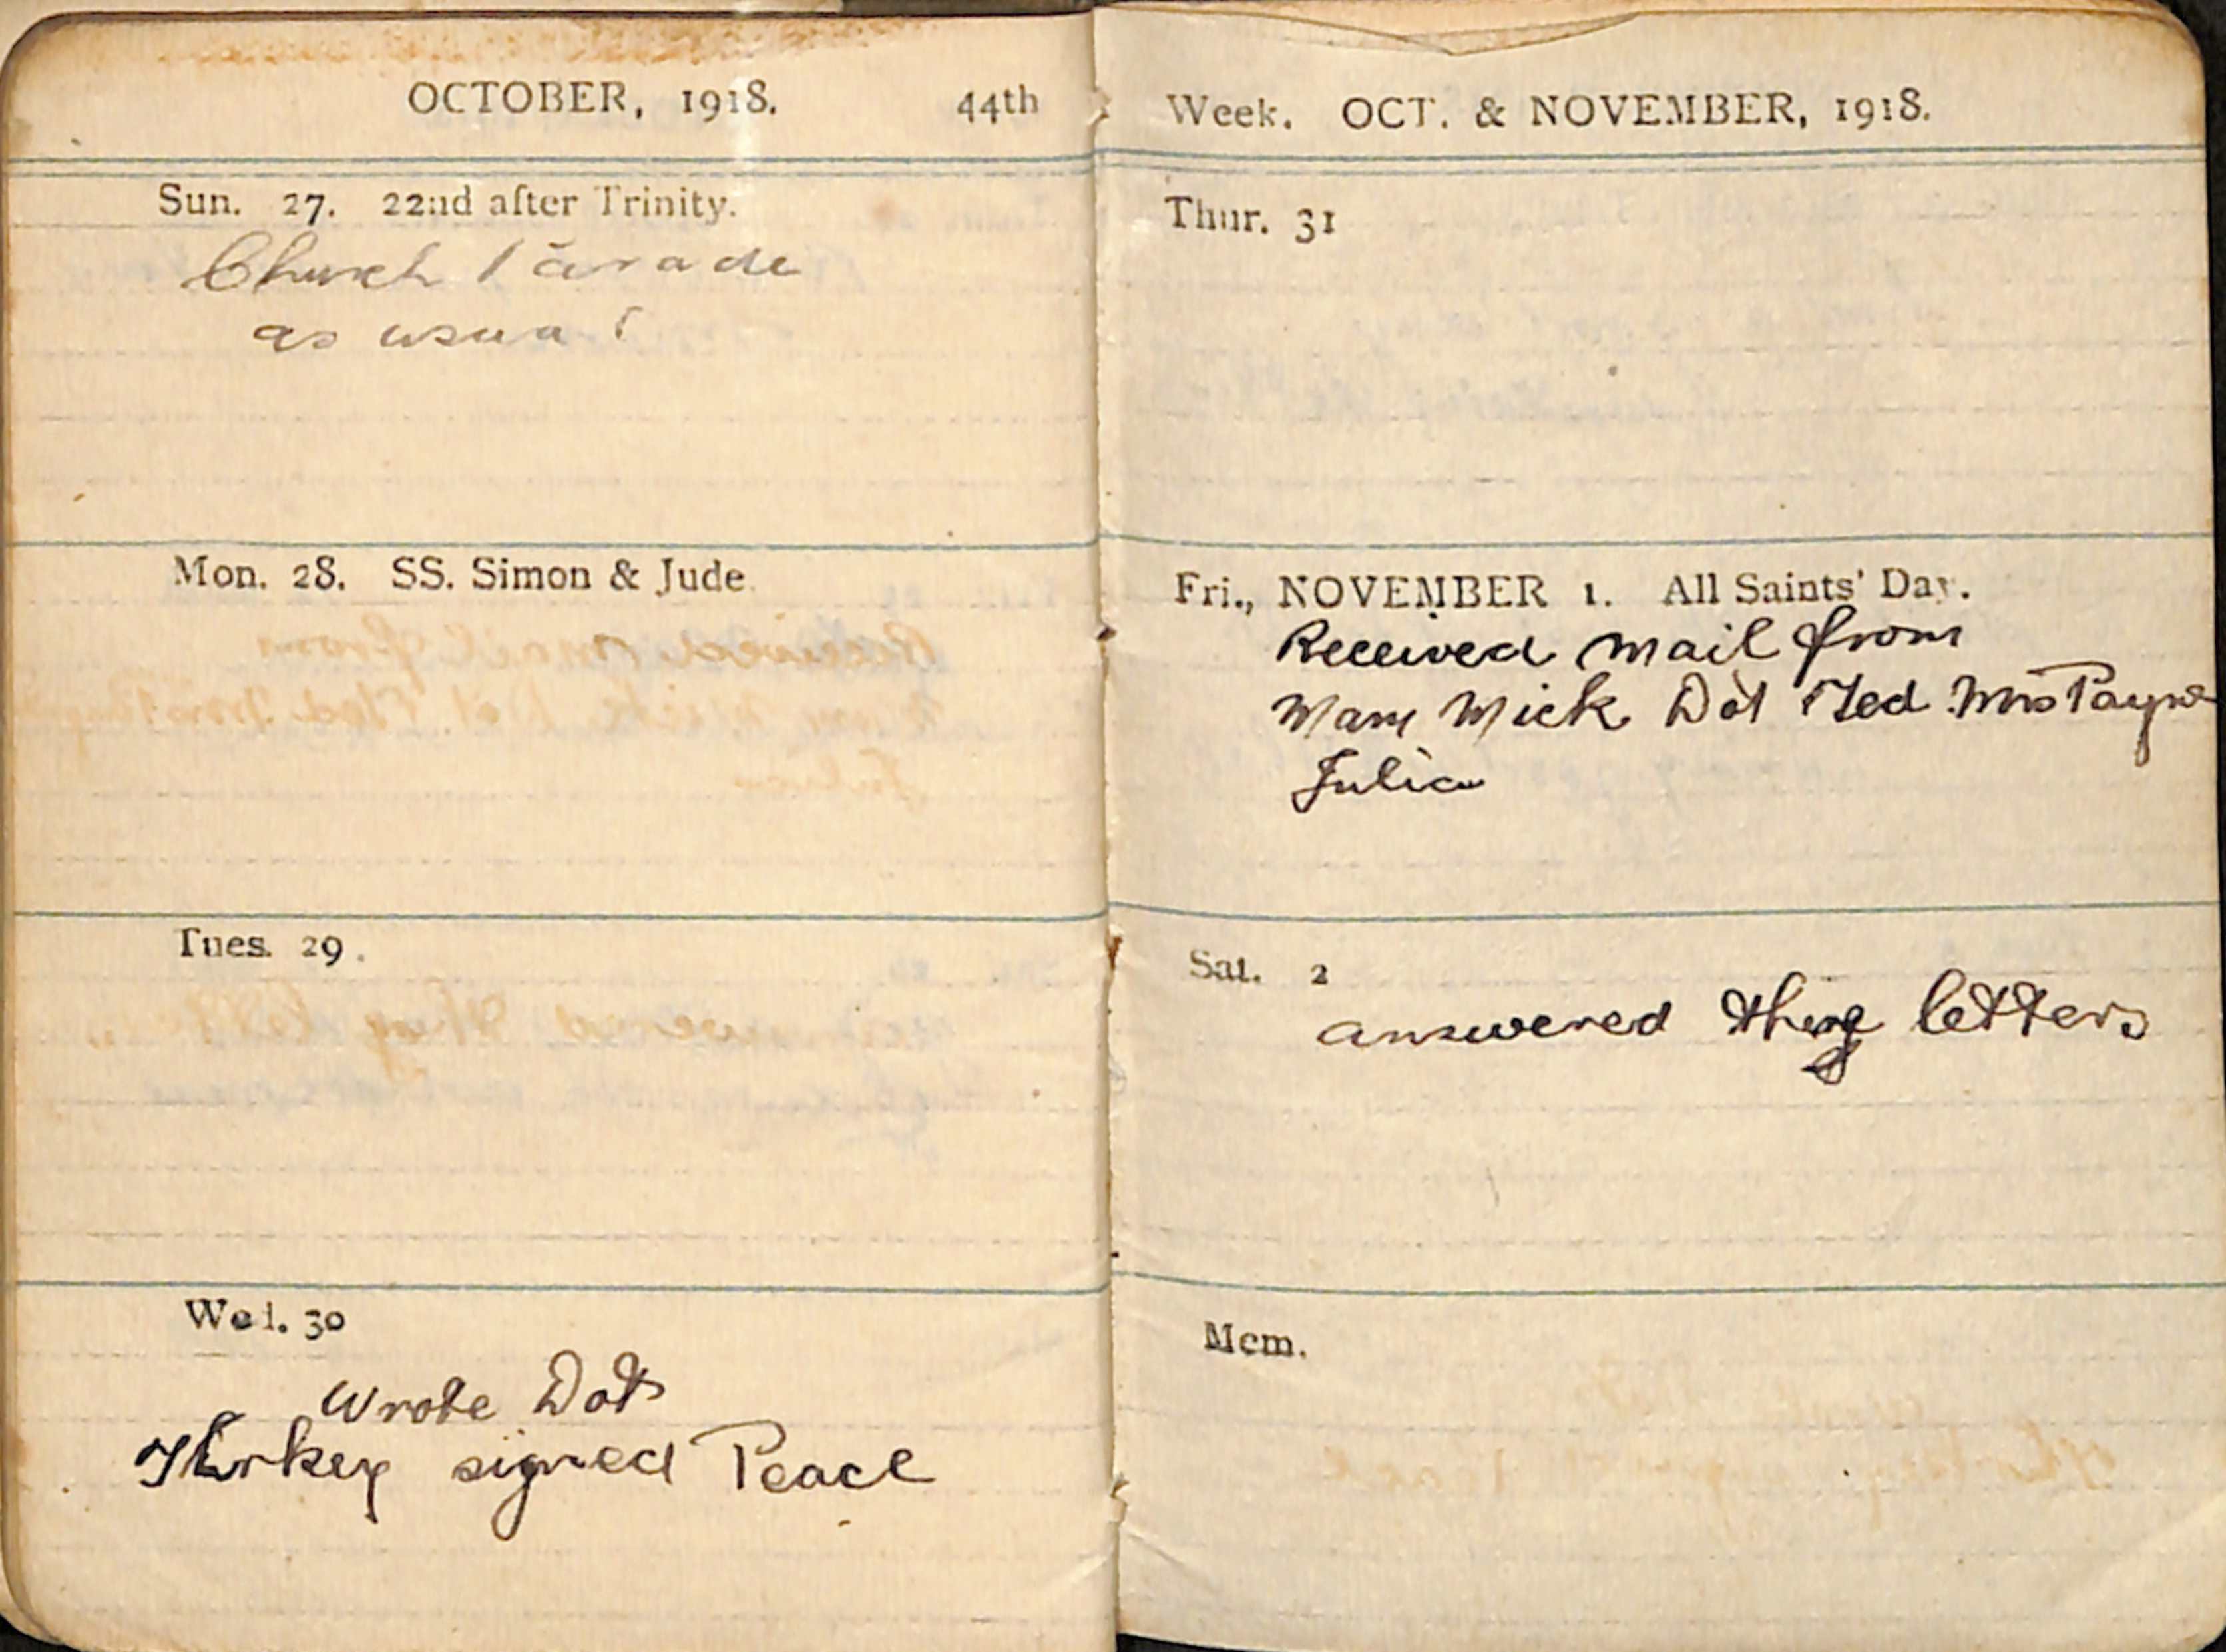 OCTOBER, 1918. 44th
Sun. 27. 22nd after Trinity.
Church Parade
as usual
Mon. 28. SS. Simon & Jude.
Tues. 29.
Wed. 30
Wrote Dot
Turkey signed Peace
Week. OCT. & NOVEMBER, 1918.
Thur. 31
Fri., NOVEMBER 1. All Saints' Day.
Received mail from
Mam Mick Dot Ted Mrs Payne
Julia
Sat. 2
answered letters
Mem.